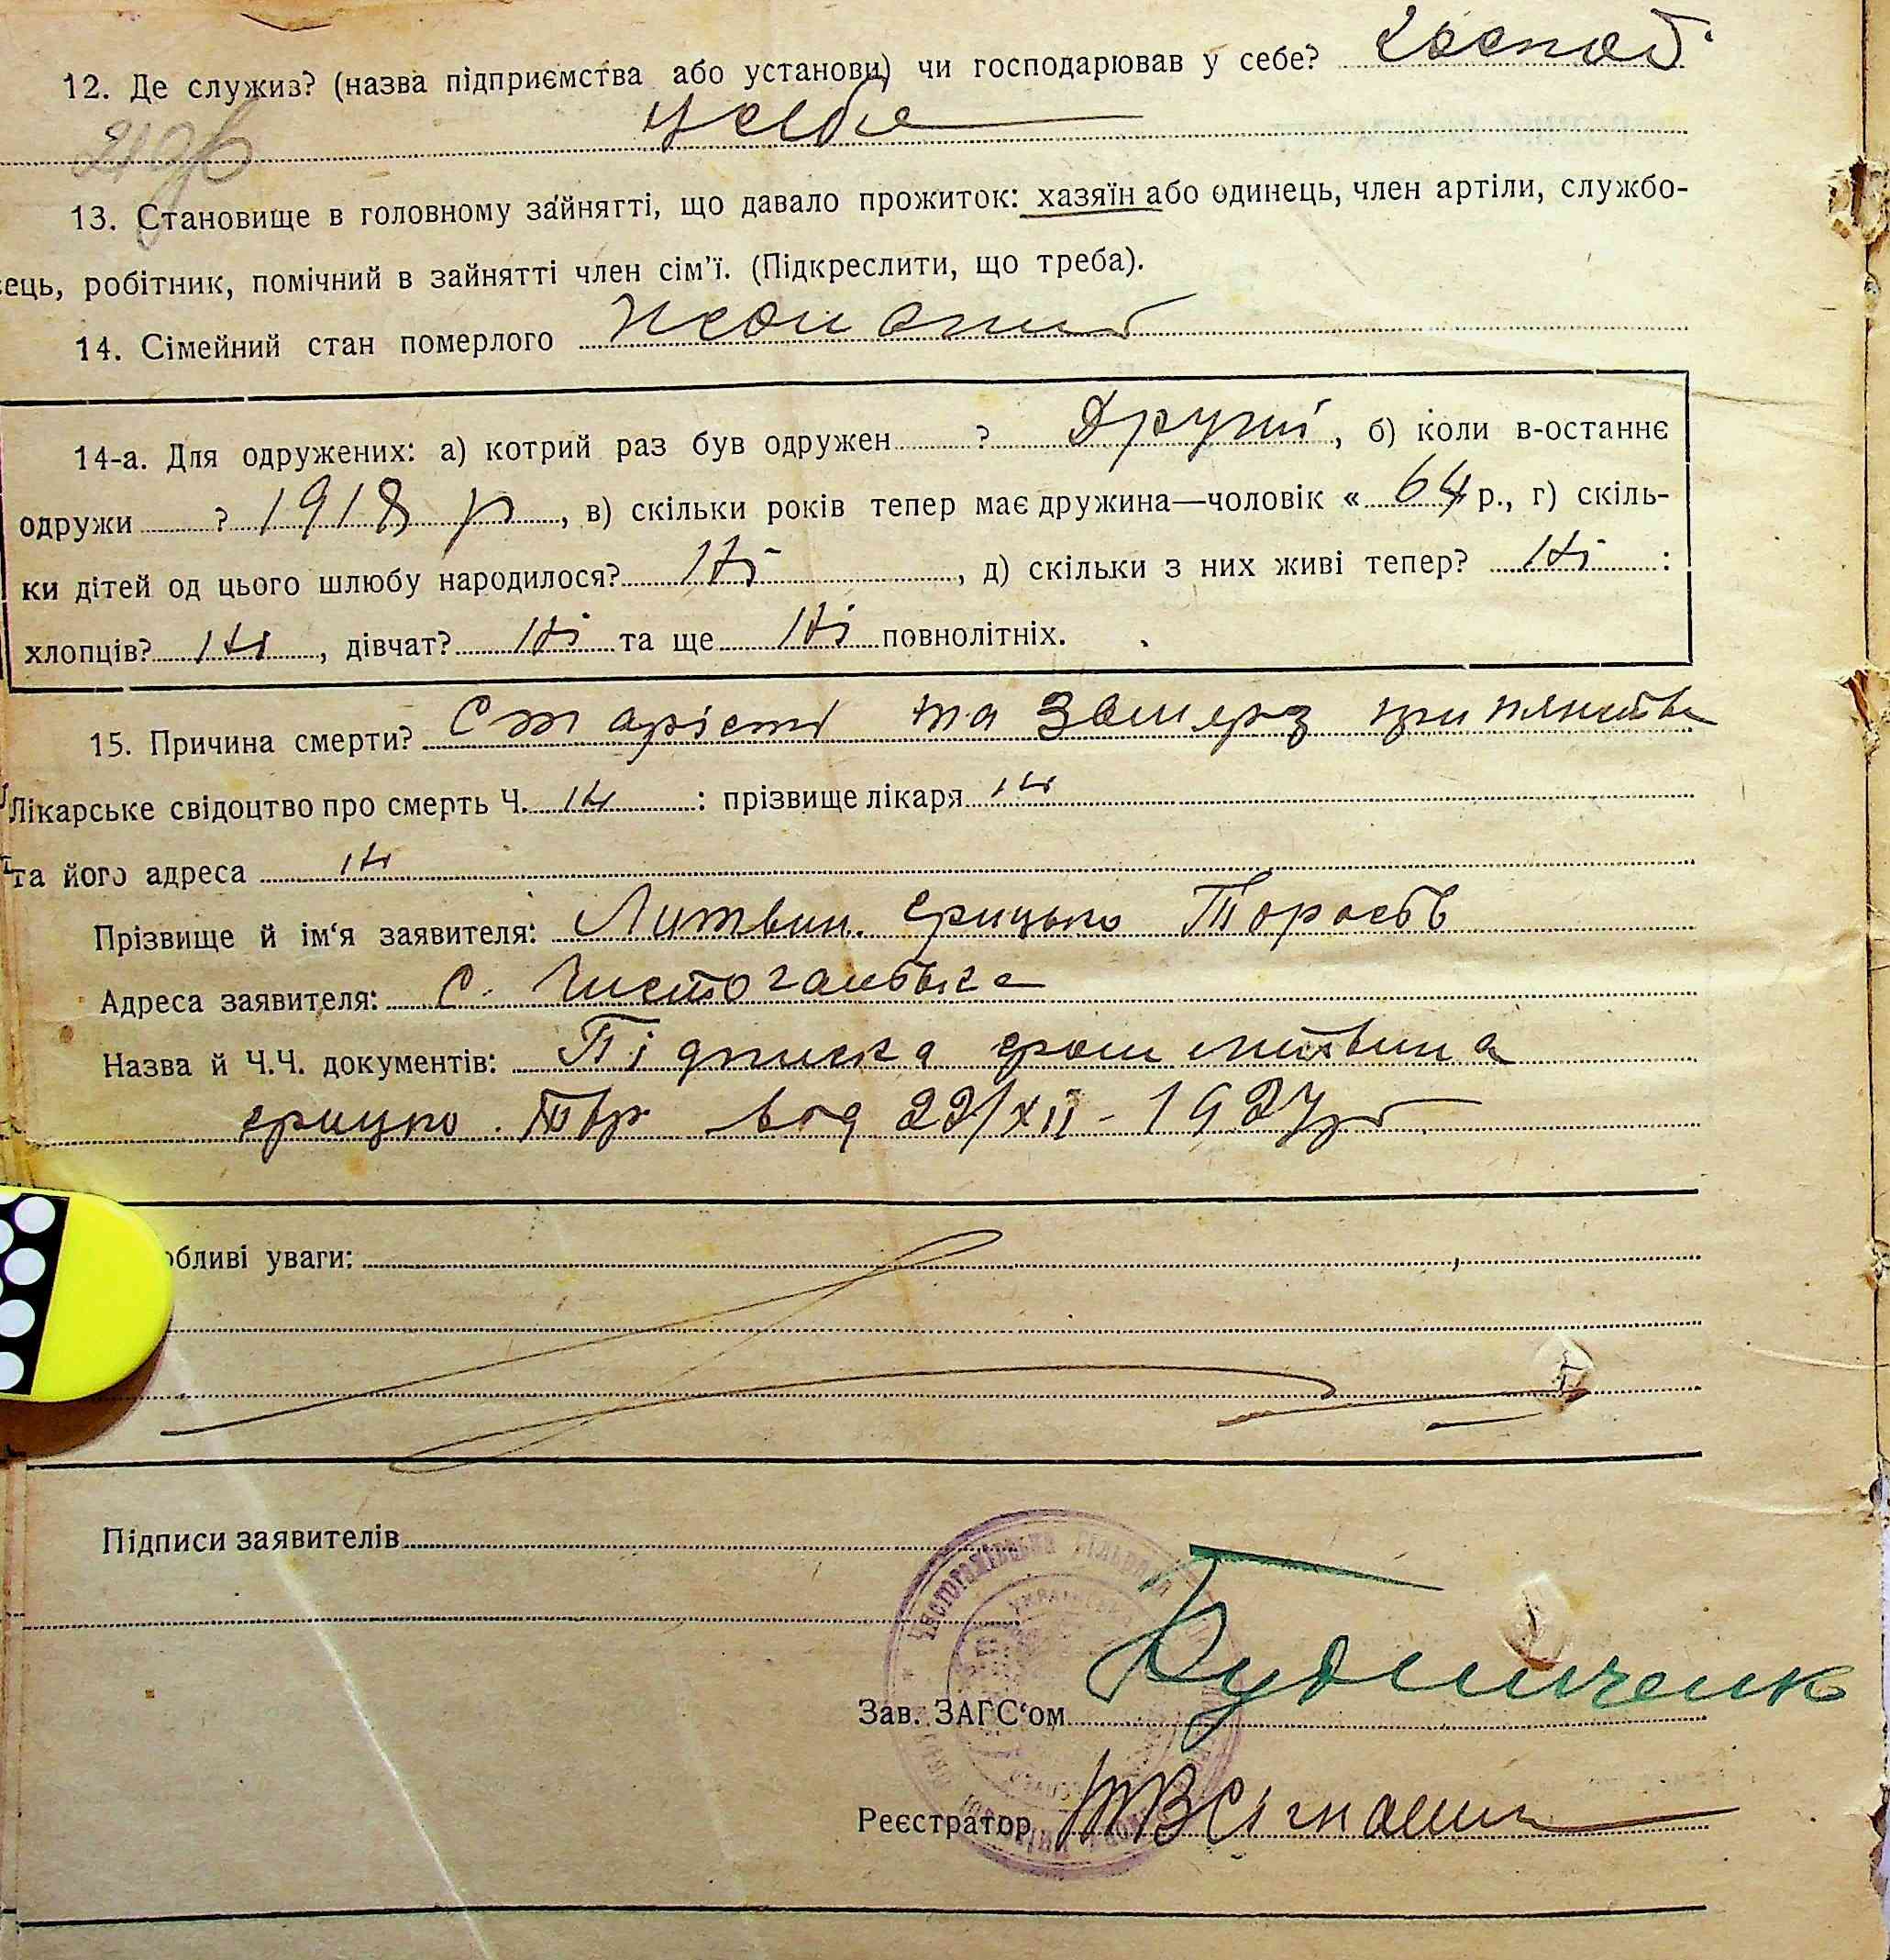 12. Де служиз? (назва підприємства або установи) чи господарював у себе? Господ.
у себе
13. Становище в головному зайнятті, що давало прожиток: хазяїн або одинець, член артіли, службо-
ець, робітник, помічний в зайнятті член сім'ї. (Підкреслити, що треба).
14. Сімейний стан померлого
14-а. Для одружених: а) котрий раз був одружен ? другий, б) коли в-останнє
одружи ? 1918 р, в) скільки років тепер має дружина—чоловік « 64 р., г) скіль-
ки дітей од цього шлюбу народилося? Ні, д) скільки з них живі тепер? Ні :
хлопців? Ні, дівчат? Ні та ще Ні повнолітніх.
15. Причина смерти? Старість та замерз при пянстві
Лікарське свідоцтво про смерть Ч. Ні : прізвище лікаря Ні
та його адреса Ні
Прізвище й ім'я заявителя: Литвин Грицько
Адреса заявителя: С.
Назва й Ч.Ч. документів: Підписка гром Литвина
Грицко від 22/XII - 1927р
обливі уваги:
Підписи заявителів
Зав. ЗАГС'ом
Реєстратор